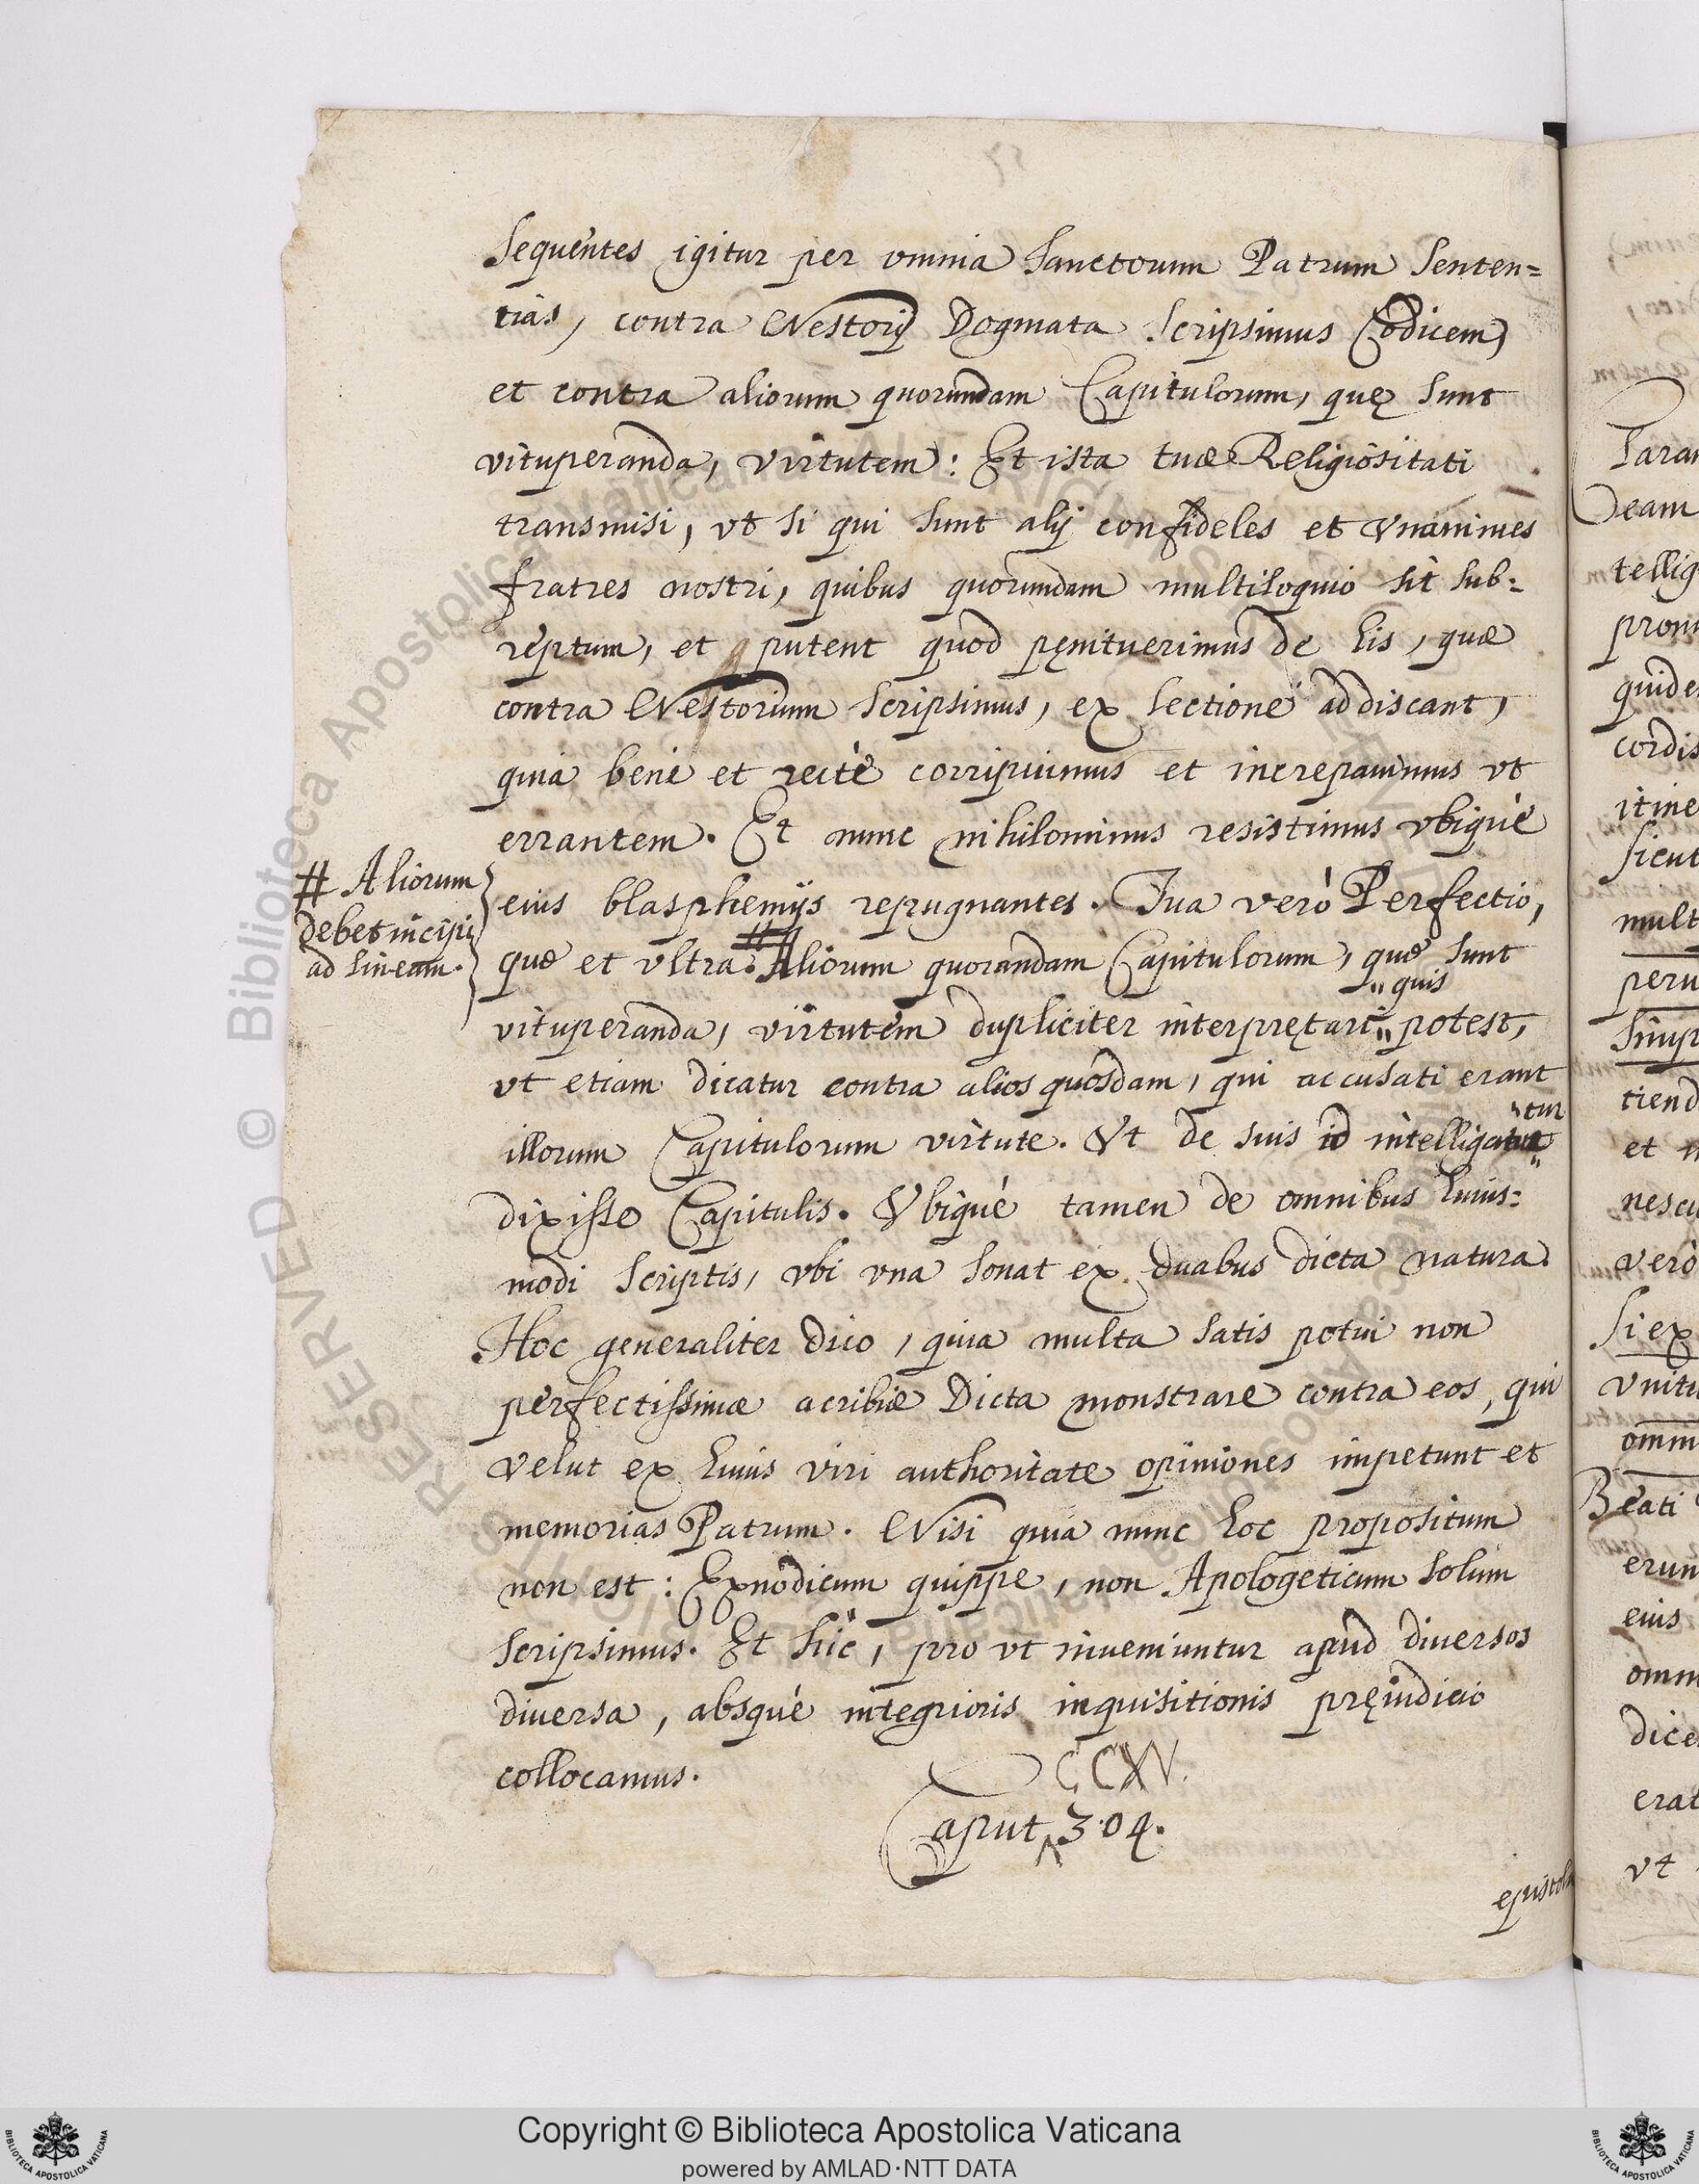 Sequentes igitur per omnia Sanctorum Patrum Senten=
tias, contra Nestorij Dogmata Scripsimus Codicem,
et contra aliorum quorundam Capitulorum, quę sunt
vituperanda, virtutem: Et ista tuæ Religiositati
transmisi, vt si qui sunt alij confideles et Vnanimes
fratres nostri, quibus quorundam multiloquio sit sub=
reptum, et putent quod pęnituerimus de his, quæ
contra Nestorium scripsimus, ex lectione addiscant,
quia bene et rectè corripuimus et increpauimus vt
errantem. Et nunc nihilominus resistimus vbiquè
# Aliorum
debet incipi
ad lineam.
eius blasphemijs repugnantes. Tua verò Perfectio,
quæ et vltra. # Aliorum quorundam Capitulorum, quæ sunt
" quis
vituperanda, virtutem dupliciter interpretari " potest,
vt etiam dicatur contra alios quosdam, qui accusati erant
tur
illorum Capitulorum virtute. Vt de suis id intelligatur
dixisse Capitulis. Vbiquè tamen de omnibus huius=
modi Scriptis, vbi vna sonat ex duabus dicta natura.
Hoc generaliter dico, quia multa satis potui non
perfectissimæ acribiæ Dicta monstrare contra eos, qui
velut ex huius viri authoritate opiniones impetunt et
memorias Patrum. Nisi quia nunc hoc propositum
non est: Exnodicum quippe, non Apologeticum solum
scripsimus. Et hìc, pro vt inueniuntur apud diuersos
diuersa, absquè integrioris inquisitionis pręiudicio
collocamus.
CCXV.
Caput 304.
epistola
Deam
tellig
quide
cordis
itine
sicut
mult
peru
tiend
et
verò
Si ex
Vnitu
omni
Beati
erun
eius
omn
dice
erat
vt